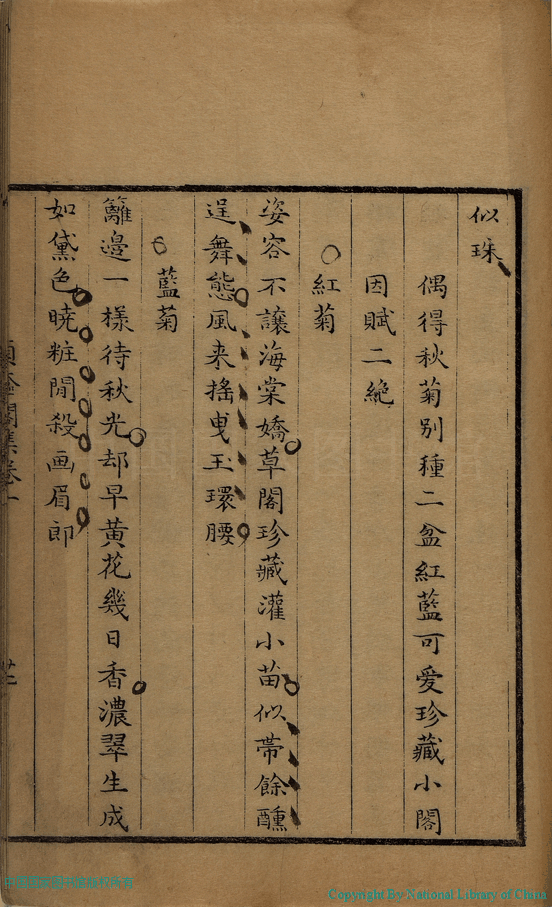 似珠
偶得秋菊别種二盆紅藍可爱珍藏小閣
因賦二絶
紅菊
姿容不讓海棠嬌草閣珍藏灌小苗似帶餘醺
逞舞態風来搖曳玉環腰
藍菊
籬邊一樣待秋光却早黄花幾日香濃翠生成
如黛色暁粧閒殺画眉郎
集卷一
Copyright By National Library of China